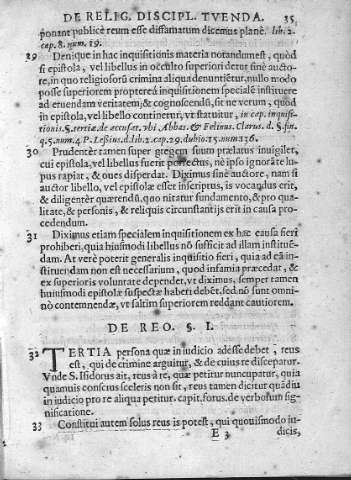 DE RELIG. DISCIPL. TVENDA. 35
ponant publicè reum esse diffamatum dicemus planè. lib. 2.
cap. 8. num. 19.
29 Denique in hac inquisitionis materia notandum est, quòd
si epistola, vel libellus in occulto superiori detur sine aucto-
re, in quo religiosorū crimina aliqua denuntiētur, nullo modo
posse superiorem propterea inquisitionem specialē instituere
ad eruendam veritatem; & cognoscendū, sit ne verum, quod
in epistola, vel libello continetur, vt statuitur, in cap. inquisi-
tionis. §. tertiæ. de accusat. vbi Abbas. & Felinus. Clarus. d. §. fin.
q. 5. num. 4. P. Lessius. d. lib. 2. cap. 29. dubio. 15. num. 136.
30 Prudenter tamen super gregem suum prælatus inuigilet,
cui epistola, vel libellus fuerit porrectus, nè ipso ignorāte lu-
pus rapiat, & oues disperdat. Diximus sinè auctore, nam si
auctor libello, vel epistolæ esset inscriptus, is vocandus erit,
& diligenter quærendū, quo nitatur fundamento, & pro qua-
litate, & personis, & reliquis circunstantijs erit in causa pro-
cedendum.
31 Diximus etiam specialem inquisitionem ex hac causa fieri
prohiberi, quia huiusmodi libellus nō sufficit ad illam instituē-
dam. At verè poterit generalis inquisitio fieri, quia ad eā in-
stituendam non est necessarium, quod infamia præcedat, &
ex superioris voluntate dependet, vt diximus, semper tamen
huiusmodi epistolæ suspectæ haberi debēt, sed nō sunt omni-
nò contemnendæ, vt saltim superiorem reddant cautiorem.
DE REO. §. I.
32 TERTIA persona quæ in iudicio adesse debet, reus
est, qui de crimine arguitur, & de cuius re disceptatur.
Vnde S. Isidorus ait, reus à re, quæ petitur nuncupatur, quia
quamuis conscius sceleris non sit, reus tamen dicitur quādiu
in iudicio pro re aliqua petitur. capit. forus. de verborum sig-
nificatione.
33 Constitui autem solus reus is potest, qui quouismodo iu-
E 3 dicis,